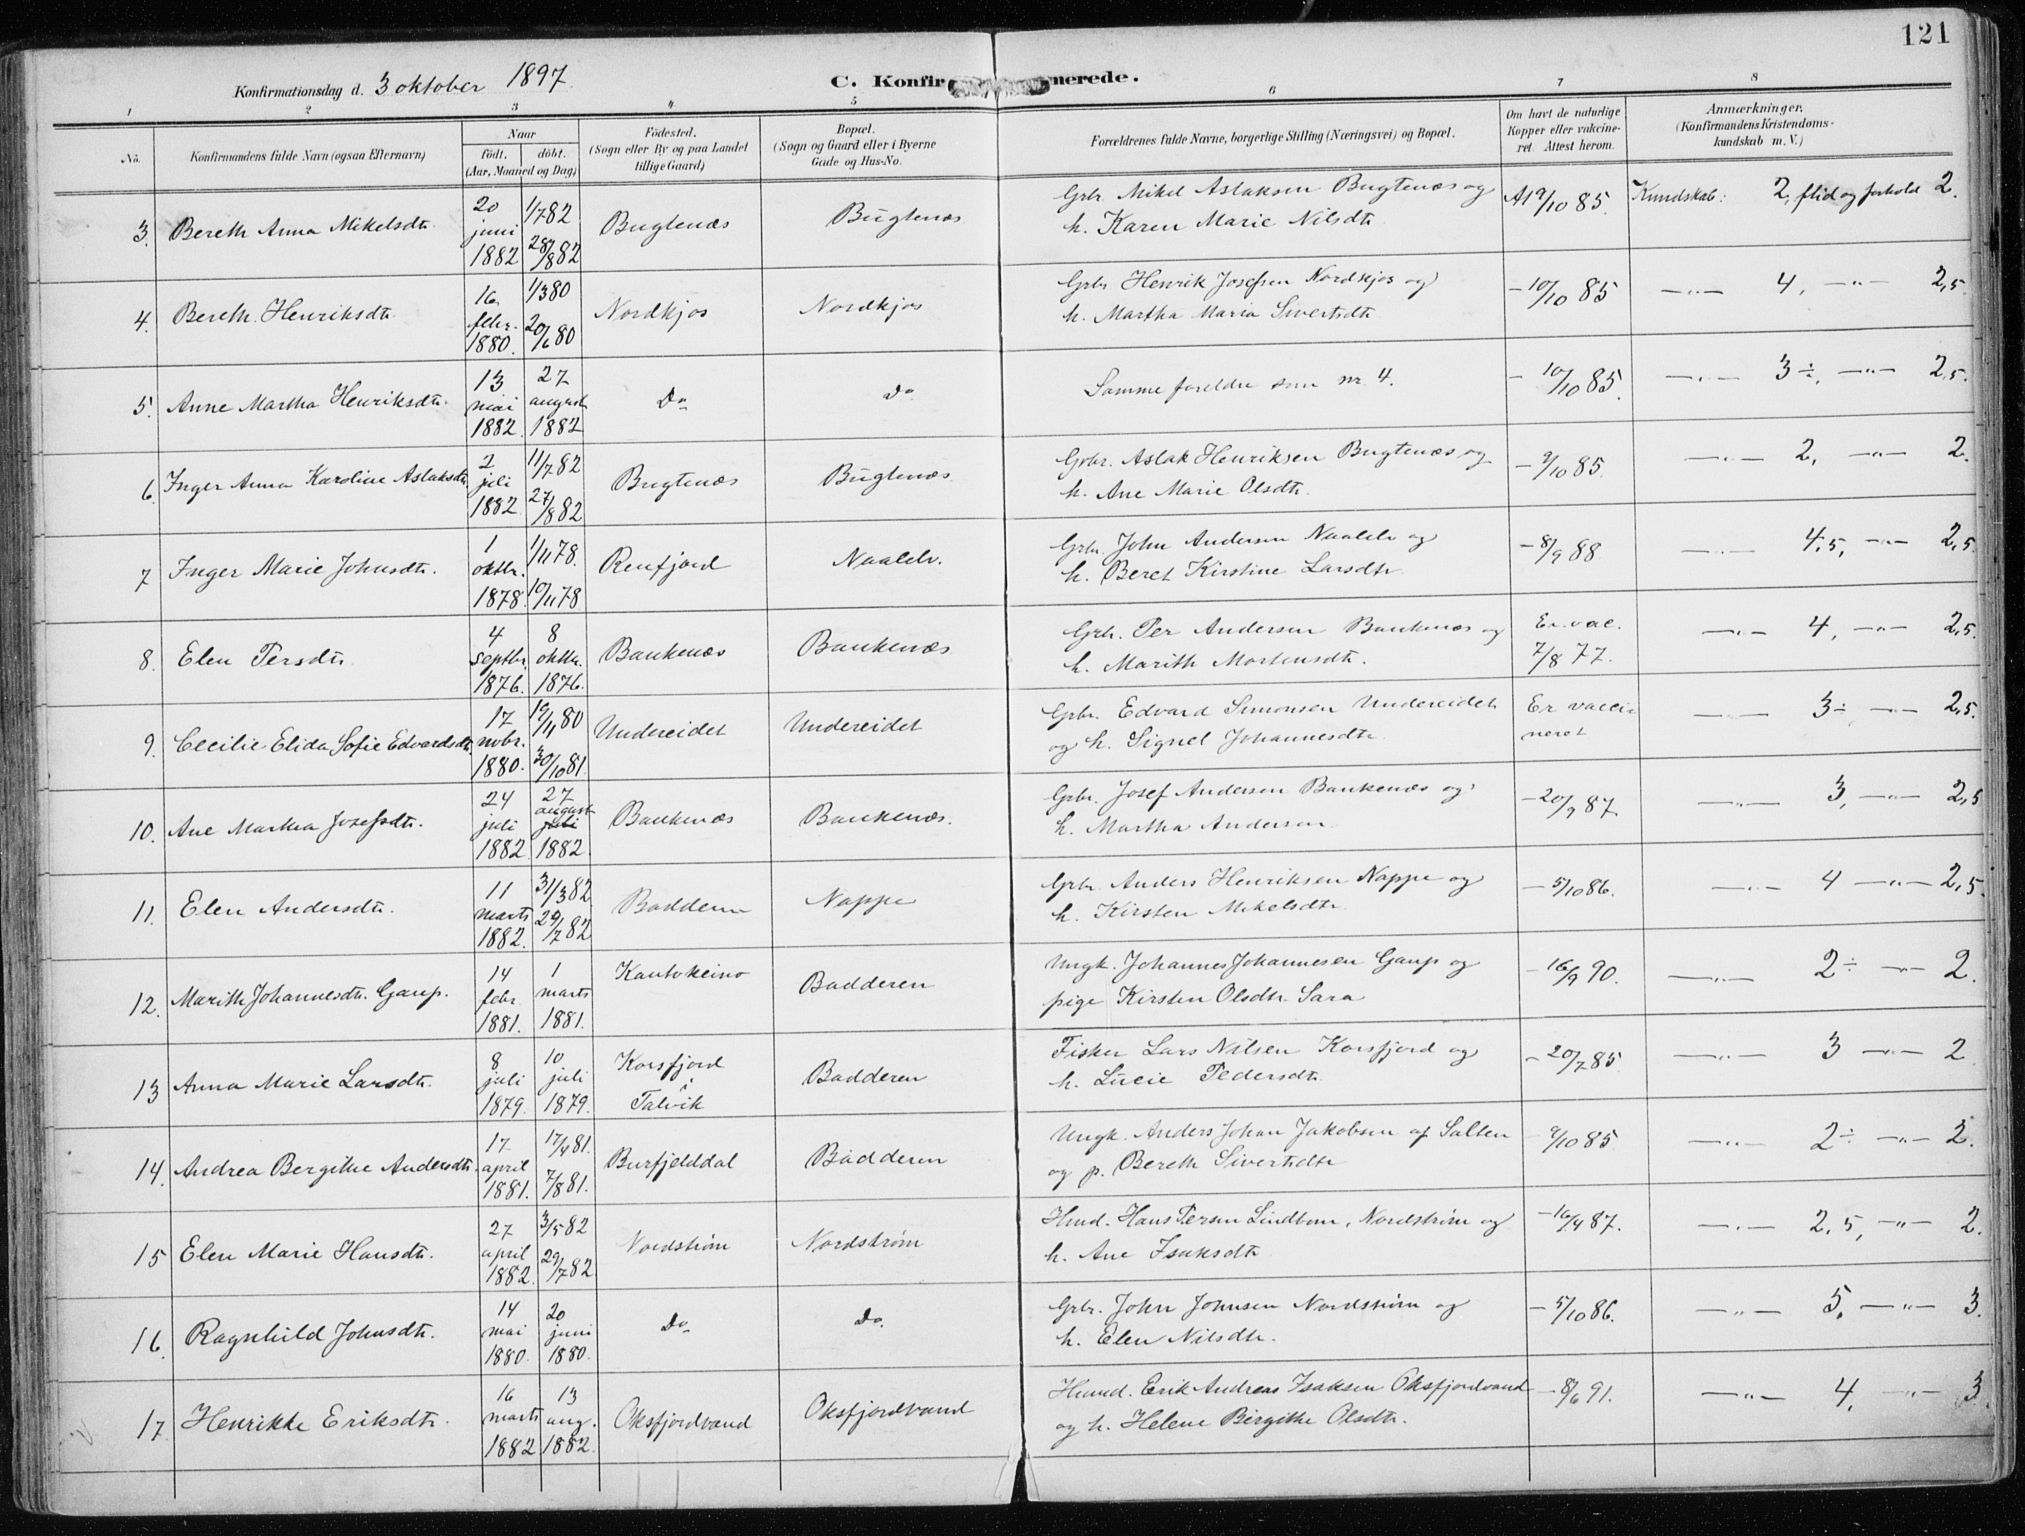 121
Konfirmationsdag d. 3 oktober 1897.
C. Konfir merede.
1 2 3 4 5 6 7 8
No. Konfirmandens fulde Navn (ogsaa Efternavn) Naar født. døbt. (Aar, Maaned og Dag) Fødested. (Sogn eller By og paa Landet tillige Gaard) Bopæl. (Sogn og Gaard eller i Byerne Gade og Hus-No. Forældrenes fulde Navne, borgerlige Stilling (Næringsvei) og Bopæl. Om havt de naturlige Kopper eller vakcineret. Attest herom. Anmærkninger. (Konfirmandens Kristendomskundskab m. V.)
3. Bereth Anna Mikelsdtr. 20 juni 1882 1/7 82 28/8 82 Bugtenæs Bugtenæs Grbr. Mikel Aslaksen Bugtenæs og h. Karen Marie Nilsdtr. At 9/10 85. Kundskab: 2, flid og forhold 2.
4. Bereth. Henriksdtr. 16 febr. 1880. 1/3 80 20/6 80 Nordkjos Nordkjos Grbr Henrik Josefsen Nordkjos og h. Martha Maria Sivertsdtr. — 10/10 85 —"— 4, —"— 2,5.
5. Anne Martha Henriksdtr. 13 mai 1882. 27 august 1882 Do Do Samme foreldre som nr. 4. — 10/10 85. —"— 3÷, —"— 2,5.
6. Inger Anna Karoline Aslaksdtr. 2 juli 1882. 11/7 82 27/8 82 Bugtenæs Bugtenæs. Grbr. Aslak Henriksen Bugtenæs og h. Ane Marie Olsdtr. — 9/10 85. —"— 2, —"— 2.
7 Inger Marie Johnsdtr. 1 oktbr. 1878. 1/11 78. 10/11 78 Renfjord Naalelv. Grbr. John Andersen Naalelv og h. Beret Kirstine Larsdtr. — 8/9 88 —"— 4,5, —"— 2,5.
8. Elen Persdtr. 4 septbr. 1876. 8 oktbr. 1876. Bankenæs Bankenæs Grbr. Per Andersen Bankenæs og h. Marith Mortensdtr. Er. vac. 7/8 77. —"— 4, —"— 2,5.
9. Cecilie Elida Sofie Edvardsdtr. 17 novbr. 1880. 19/11 80 30/10 81. Undereidet Undereidet Grbr. Edvard Simonsen Undereidet og h. Signel Johannesdtr. Er vaccineret —"— 3÷ —"— 2,5.
10. Ane Martha Josefsdtr. 24 juli 1882 27 august juli 1882 Bankenæs Bankenæs. Grbr. Josef Andersen Bankenæs og h. Martha Andersen — 20/9 87. —"— 3, —"— 2,5
11. Elen Andersdtr. 11 marts 1882. 31/3 82 29/7 82 Badderen Nappe Grbr Anders Henriksen Nappe og h. Kirsten Mikelsdtr. — 5/10 86. —"— 4 —"— 2,5.
12. Marith Johannesdtr. Gaup. 14 febr. 1881. 1 marts 1881. Kautokeino Badderen Ungk. Johannes Johannesen Gaup og pige Kirsten Olsdtr. Sara — 16/9 90. —"— 2÷ —"— 2.
13 Anna Marie Larsdtr. 8 juli 1879. 10 juli 1879. Korsfjord i Talvik Badderen Fisker Lars Nilsen Korsfjord og h. Lucie Pedersdtr. — 20/7 85. —"— 3 —"— 2
14. Andrea Bergithe Andersdtr. 17 april 1881. 17/4 81. 7/8 81. Burfjelddal Badderen Ungk. Anders Johan Jakobsen af Salten og p. Bereth Sivertsdtr — 9/10 85 —"— 2÷ —"— 2.
15 Elen Marie Hansdtr. 27 april 1882. 3/5 82 29/7 82. Nordstrøm Nordstrøm Hmd. Hans Persen Lindbom, Nordstrøm og h. Ane Isaksdtr — 16/4 87. —"— 2,5, —"— 2.
16. Ragnhild Johnsdtr. 14 mai 1880. 20 juni 1880. Do Do. Grbr. John Johnsen Nordstrøm og h. Elen Nilsdtr. — 5/10 86. —"— 5. —"— 3.
17. Henrikke Eriksdtr. 16 marts 1882 13 aug. 1882. Oksfjordvand Oksfjordvand Husmd. Erik Andreas Isaksen Oksfjordvand og h. Helene Birgithe Olsdtr. — 8/6 91. —"— 4. —"— 3.